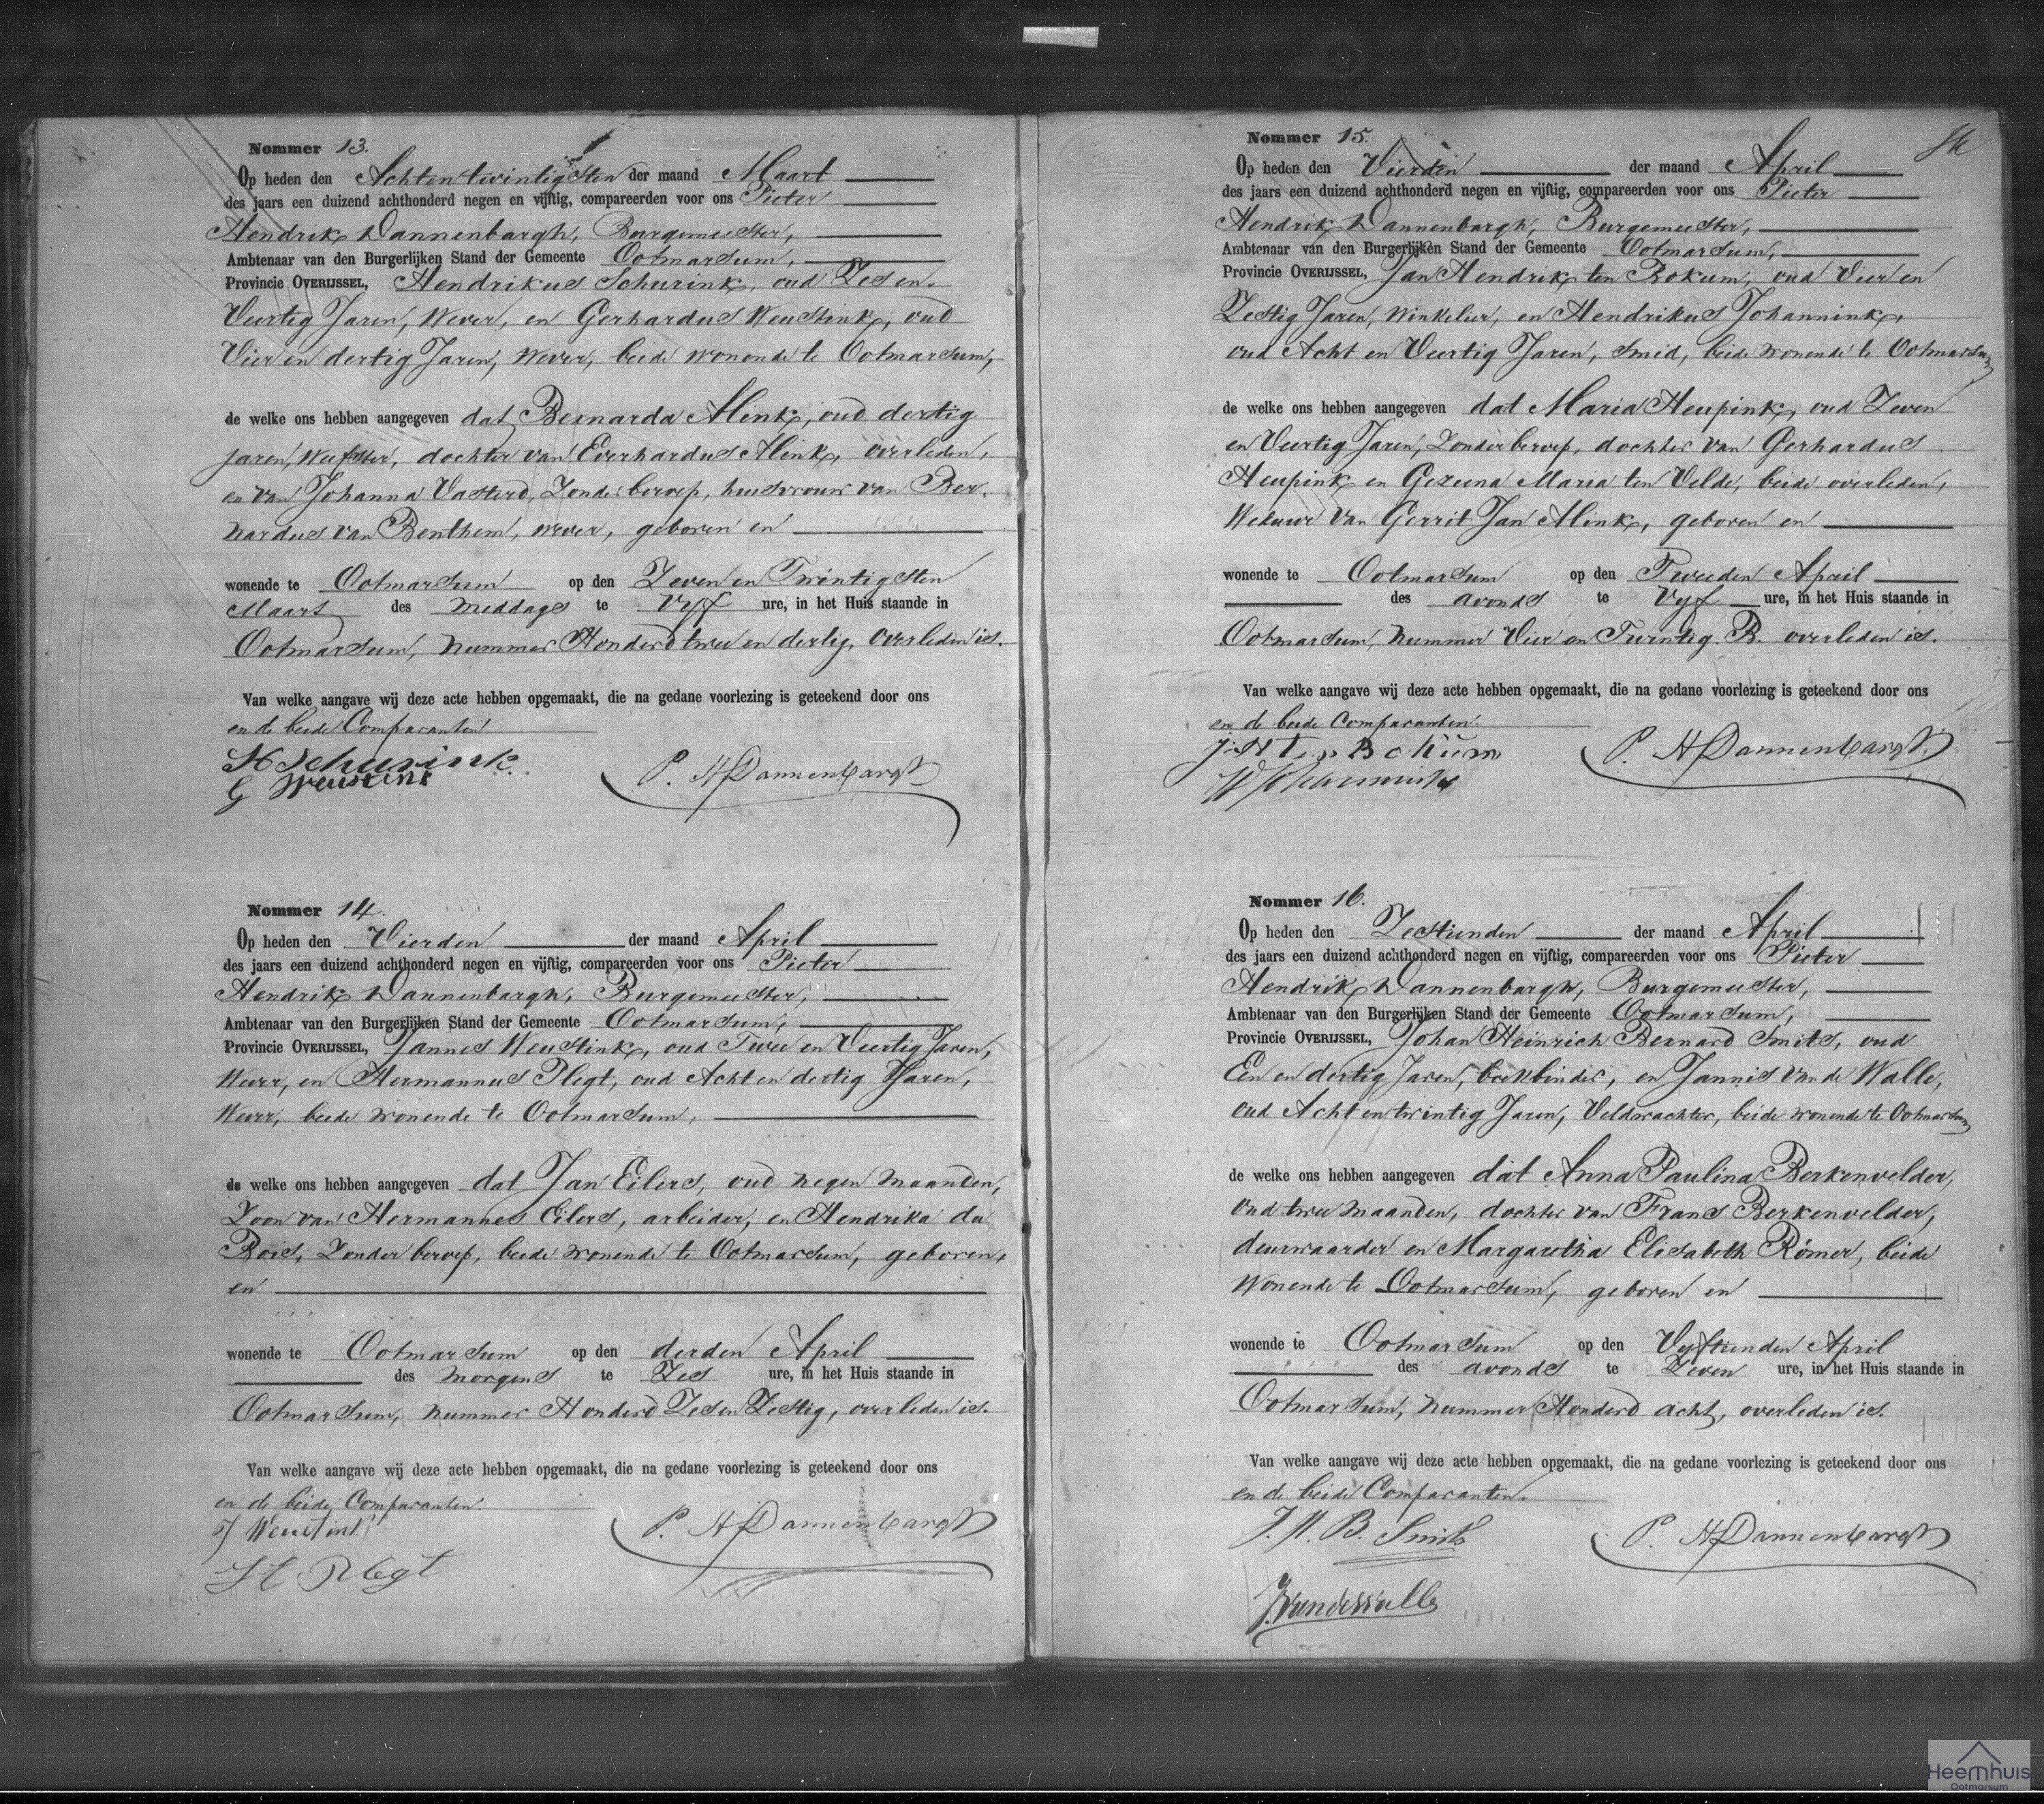 Nommer 13.
Op heden den Achtentwintigsten der maand Maart
des jaars een duizend achthonderd negen en vijftig, compareerden voor ons Pieter
Hendrik Dannenbargh, Burgemeester,
Ambtenaar van den Burgerlijken Stand der Gemeente Ootmarsum,
Provincie OVERIJSSEL, Hendrikus Schurink, oud Zes en
Veertig Jaren, Wever, en Gerhardus Weustink, oud
Vier en dertig Jaren, Wever, beide wonende te Ootmarsum,
de welke ons hebben aangegeven dat Bernarda Alink, oud dertig
jaren, Weefster, dochter van Everhardus Alink, overleden,
en van Johanna Vasterd, Zonder beroep, huisvrouw van Ber-
nardus van Benthem, wever, geboren en
wonende te Ootmarsum op den Zeven en Twintigsten
Maart des Middags te Vyf ure, in het Huis staande in
Ootmarsum, nummer Honderd twee en dertig, overleden is.
Van welke aangave wij deze acte hebben opgemaakt, die na gedane voorlezing is geteekend door ons
en de beide Comparanten
H Schurink.
G Weustink
P. H Dannenbargh
Nommer 14.
Op heden den Vierden der maand April
des jaars een duizend achthonderd negen en vijftig, compareerden voor ons Pieter
Hendrik Dannenbargh, Burgemeester,
Ambtenaar van den Burgerlijken Stand der Gemeente Ootmarsum,
Provincie OVERIJSSEL, Jannes Weustink, oud Twee en Veertig Jaren,
Wever, en Hermannus Plegt, oud Acht en dertig Jaren,
Wever, beide wonende te Ootmarsum,
de welke ons hebben aangegeven dat Jan Eilers, oud negen maanden,
Zoon van Hermannes Eilers, arbeider, en Hendrika du
Bois, Zonder beroep, beide wonende te Ootmarsum, geboren,
en
wonende te Ootmarsum op den derden April
des morgens te Zes ure, in het Huis staande in
Ootmarsum, nummer Honderd Zes en Zestig, overleden is.
Van welke aangave wij deze acte hebben opgemaakt, die na gedane voorlezing is geteekend door ons
en de beide Comparanten.
J Weustink
H Plegt
P. H Dannenbargh
Nommer 15.
Op heden den Vierden der maand April
des jaars een duizend achthonderd negen en vijftig, compareerden voor ons Pieter
Hendrik Dannenbargh, Burgemeester,
Ambtenaar van den Burgerlijken Stand der Gemeente Ootmarsum,
Provincie OVERIJSSEL, Jan Hendrik ten Bokum, oud Vier en
Zestig Jaren, Winkelier, en Hendrikus Johannink,
oud Acht en Veertig Jaren, Smid, beide wonende te Ootmarsum
de welke ons hebben aangegeven dat Maria Heupink, oud Zeven
en Veertig Jaren, Zonder beroep, dochter van Gerhardus
Heupink en Gezena Maria ten Velde, beide overleden,
Weduwe van Gerrit Jan Alink, geboren en
wonende te Ootmarsum op den Tweeden April
des avonds te Vyf ure, in het Huis staande in
Ootmarsum, nummer Vier en Twintig B. overleden is.
Van welke aangave wij deze acte hebben opgemaakt, die na gedane voorlezing is geteekend door ons
en de beide Comparanten.
J: H Ten Bokum
P. H Dannenbargh
Nommer 16.
Op heden den Zestienden der maand April
des jaars een duizend achthonderd negen en vijftig, compareerden voor ons Pieter
Hendrik Dannenbargh, Burgemeester,
Ambtenaar van den Burgerlijken Stand der Gemeente Ootmarsum,
Provincie OVERIJSSEL, Johan Heinrich Bernard Smits, oud
Een en dertig Jaren, boekbinder, en Jannis van de Walle,
oud Acht en twintig Jaren, Veldwachter, beide wonende te Ootmarsum
de welke ons hebben aangegeven dat Anna Paulina Berkenvelder,
oud twee maanden, dochter van Frans Berkenvelder,
deurwaarder en Margaretha Elisabeth Römer, beide
wonende te Ootmarsum, geboren en
wonende te Ootmarsum op den Vyftienden April
des avonds te Zeven ure, in het Huis staande in
Ootmarsum, nummer Honderd acht, overleden is.
Van welke aangave wij deze acte hebben opgemaakt, die na gedane voorlezing is geteekend door ons
en de beide Comparanten.
J. H. B. Smits
P. H Dannenbargh
J. vandewalle
Heemhuis
Ootmarsum